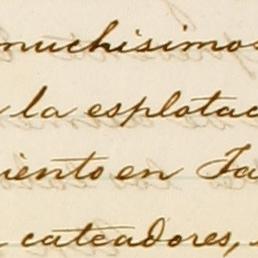 muchisimos
la esplotac
iento en Ta
cateadores,